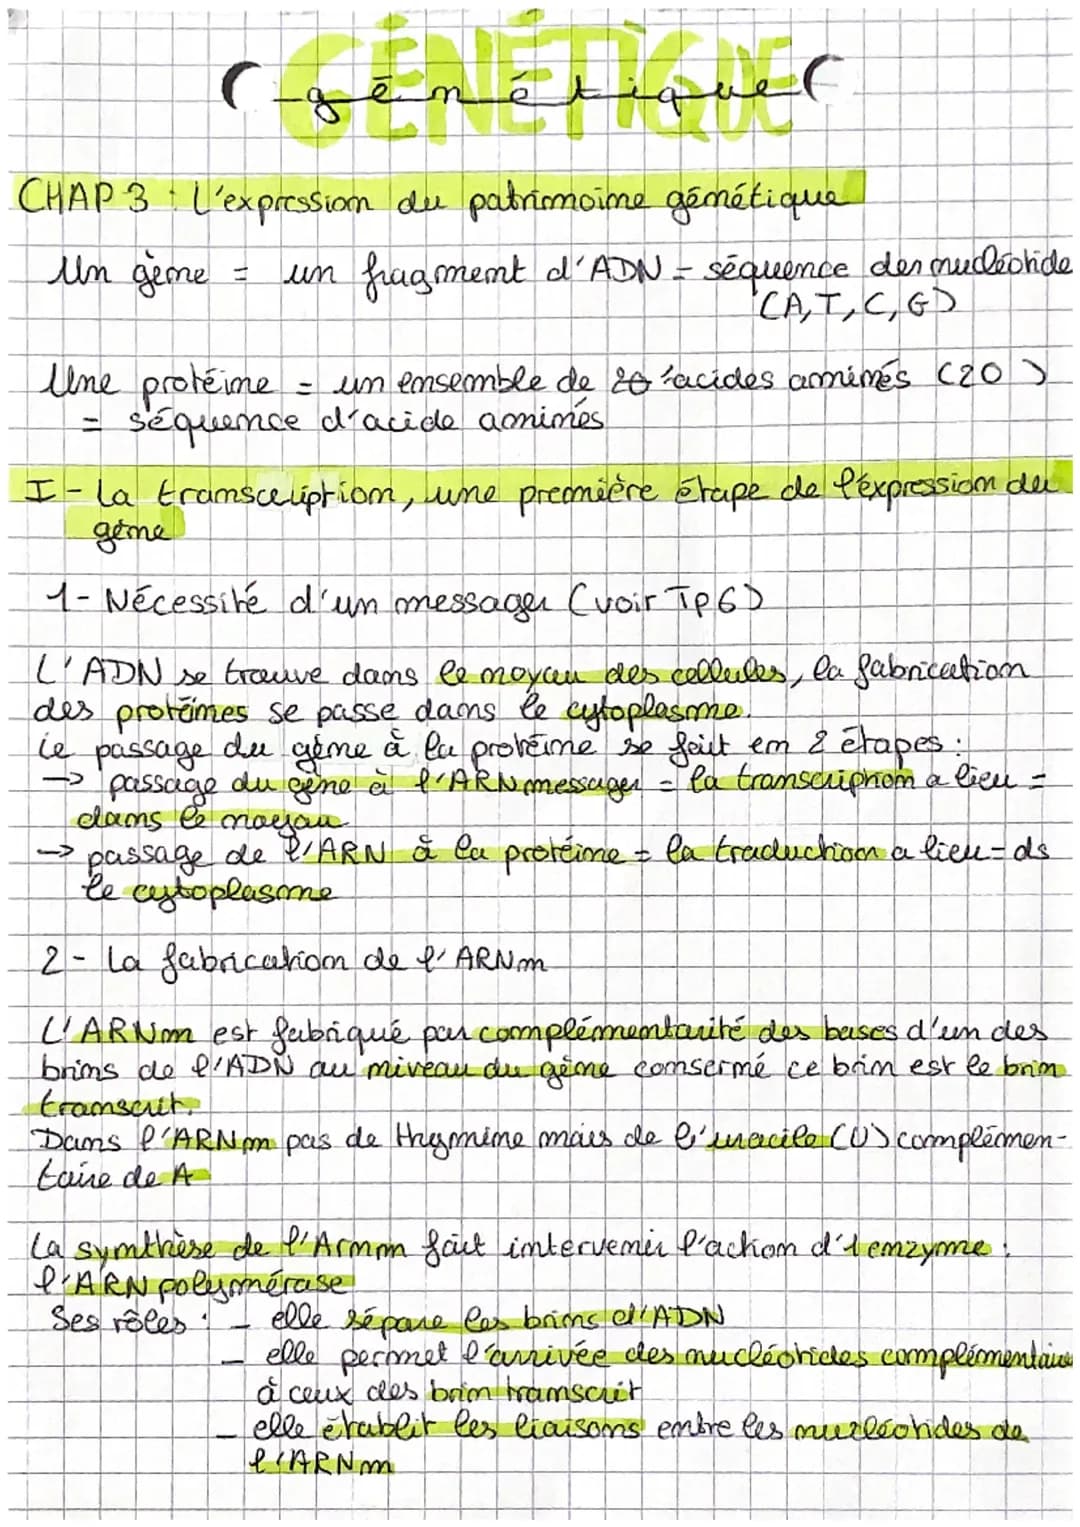 GÉNÉTIQUE
génétique
CHAP 3 : L'expression du patrimoine génétique
Un gène = un fragment d'ADN = séquence des nucléotide
(A, T, C, G)
Une protéine = un ensemble de 20 acides aminés (20)
= séquence d'acide aminés
I - La transcription, une première étape de l'éxpression du
gène
1 - Nécessité d'un messager (voir Tp6)
L'ADN se trouve dans le noyau des cellules, la fabrication
des protéines se passe dans le cytoplasme.
Le passage du gène à la protéine se fait en 2 étapes :
-> passage du gène à l'ARN messager = la transcription a lieu =
dans le noyau
-> passage de l'ARN à la protéine = la traduction a lieu = ds
le cytoplasme
2 - La fabrication de l'ARNm
L'ARNm est fabriqué par complémentarité des bases d'un des
brins de l'ADN au niveau du gène consermé ce brin est le brin
transcrit.
Dans l'ARNm pas de thymine mais de l'uracile (U) complémen-
taire de A
La synthèse de l'Arnm fait intervenir l'action d'1 enzyme :
l'ARN polymérase
Ses rôles : - elle sépare les brins d'ADN
- elle permet l'arrivée des nucléotides complémentaire
à ceux des brin transcrit
- elle établit les liaisons entre les nucléotides de
l'ARNm